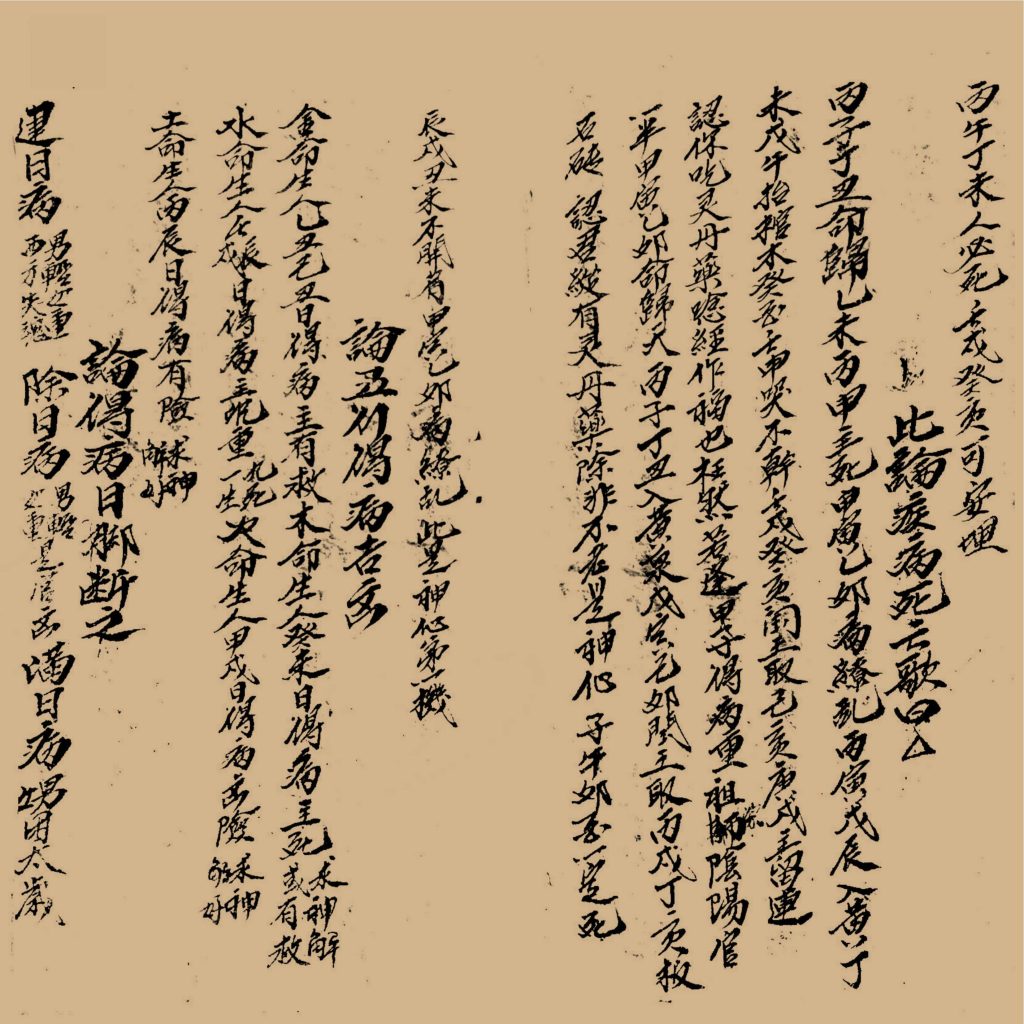 丙午丁未人必死壬戌癸亥可安埋
此論疾病死亡歌曰
丙子丁丑命歸乙未丙申主死甲寅乙卯病繚乱丙寅戊辰入黄丁
未戊午抬棺木癸酉壬申哭不幹壬戌癸亥閻王取己亥庚戌主留連
認你吃灵丹藥念經作福也枉然若逢甲子得病重祖師陰陽官
一半甲寅乙卯命歸天丙子丁丑入黄泉戊寅乙卯閻王取丙戌丁亥板
石磚認君縱有灵丹藥除非不老是神仙子午卯酉一定死
辰戌丑未不開肖甲寅乙卯病繚乱此是神仙第一機
論五行得病吉凶
金命生人乙丑己丑日得病主有救木命生人癸未日得病主死或有救求神解
水命生人壬辰戌日得病主沉重九死一生火命生人甲戌日得病凶險求神解好
土命生人丙辰日得病有險求神解好
論得病日脚断之
建日病男輕女重西方失魂除日病男輕女重是眉凶滿日病甥男太歲